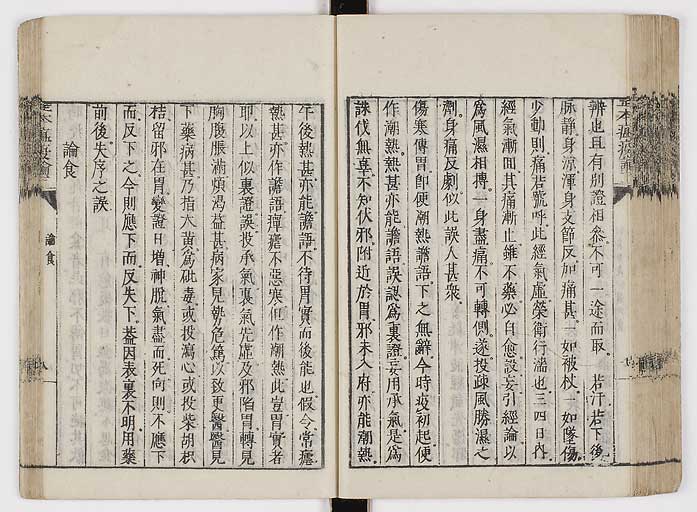 辨也且有別證相參不可一途而取 若汗若下後
脉靜身涼渾身支節反加痛甚一如被杖一如墜傷
少動則痛若號呼此經氣虛榮衛行濇也三四日內
經氣漸回其痛漸止雖不藥必自愈設妄引經論以
爲風濕相搏一身盡痛不可轉側遂投疎風勝濕之
劑身痛反劇似此誤人甚衆
傷寒傳胃卽便潮熱譫語下之無辭今時疫初起便
作潮熱熱甚亦能譫語誤認爲裏證妄用承氣是爲
誅伐無辜不知伏邪附近於胃邪未入府亦能潮熱
午後熱甚亦能譫語不待胃實而後能也假令常瘧
熱甚亦作譫語癉瘧不惡寒但作潮熱此豈胃實者
耶以上似裏證誤投承氣裏氣先虛及邪陷胃轉見
胸腹脹滿煩渴益甚病家見勢危篤以致更醫醫見
下藥病甚乃指大黃爲砒毒或投瀉心或投柴胡枳
桔留邪在胃變證日增神脫氣盡而死向則不應下
而反下之今則應下而反失下葢因表裏不明用藥
前後失序之誤
論食
論食
八